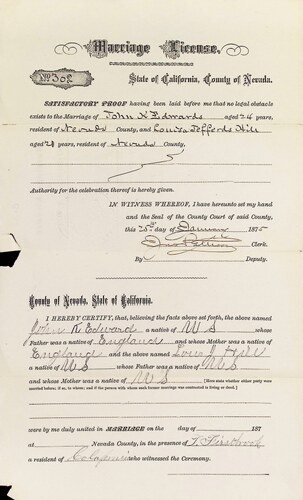 Marriage License.
No 302
State of California, County of Nevada.
SATISFACTORY PROOF having been laid before me that no legal obstacle
exists to the Marriage of John K Edwards aged 24 years,
resident of Nevada County, and Louiza Jeffords Hill
aged 20 years, resident of Nevada County.
Authority for the celebration thereof is hereby given.
IN WITNESS WHEREOF, I have hereunto set my hand
and the Seal of the County Court of said County,
this 25th day of January 1875
Clerk.
By Deputy.
County of Nevada, State of California.
I HEREBY CERTIFY, that, believing the facts above set forth, the above named
John K. Edward a native of U S whose
Father was a native of England and whose Mother was a native of
England and the above named Hill
a native of U S whose Father was a native of U S
and whose Mother was a native of U S [Here state whether either party were married
before; if so, to whom; and if the person with whom former marriage was contracted is living or dead.]
were by me duly united in MARRIAGE on the day of 187
at Nevada County, in the presence of
a resident of who witnessed the Ceremony.